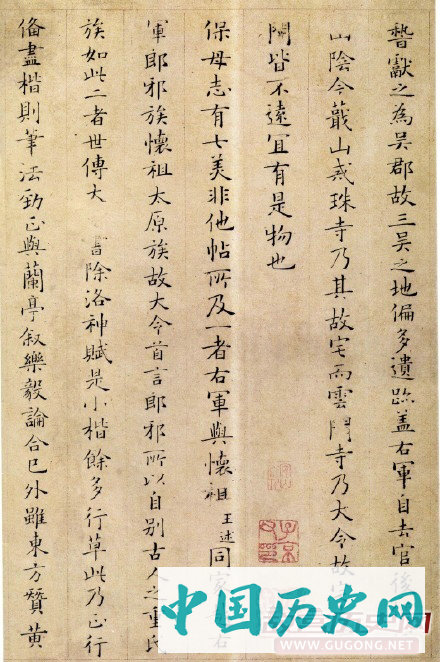 誓獻之為吳郡故三吳之地偏多遺跡盖右軍自去官後
山陰今蕺山戒珠寺乃其故宅而雲門寺乃大令故
門皆不遠宜有是物也
保母志有七美非他帖所及一者右軍與懷祖王述同
軍郎邪族懷祖太原族故大令首言郎邪所以自別古人之重氏
族如此二者世傳大 書除洛神賦是小楷餘多行草此乃正行
俻盡楷則筆法勁正與蘭亭叙樂毅論合已外雖東方贊黃
中国历史网
WWW.GUGONG.NET